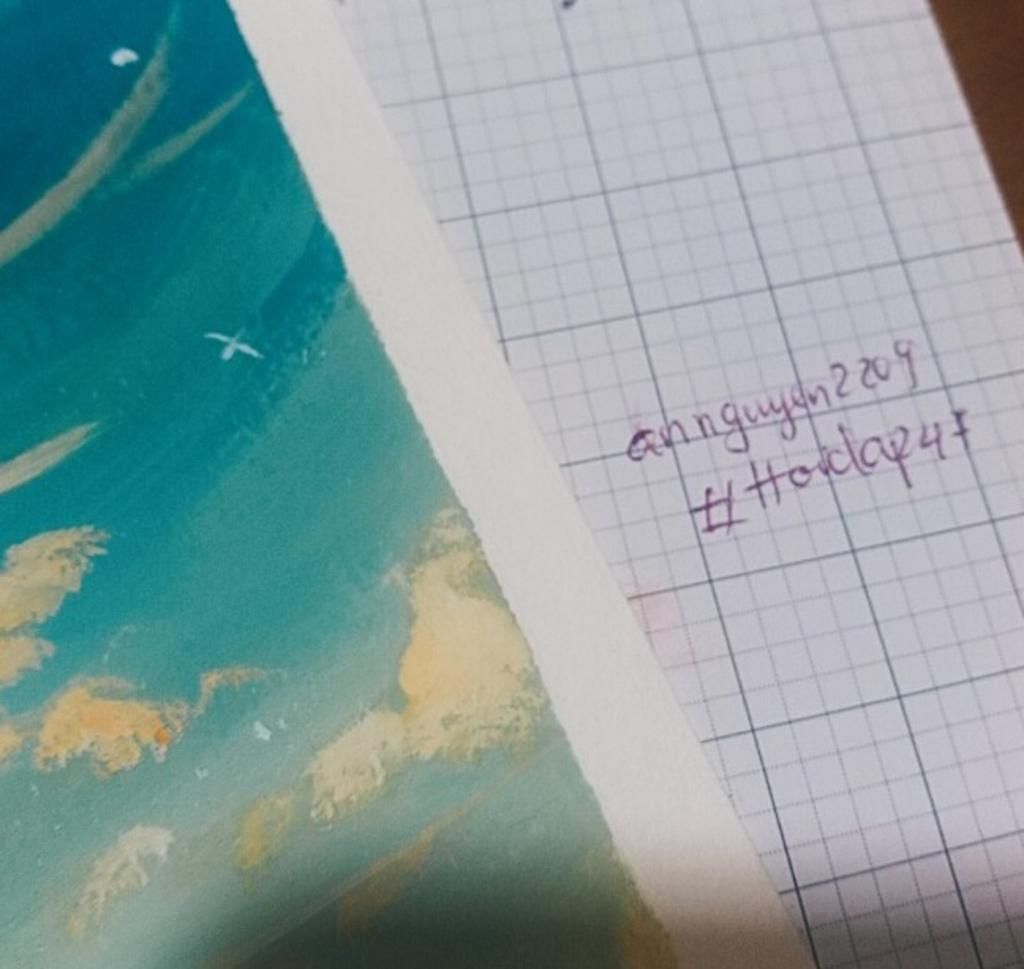 annguyen2209
#Hoidap247